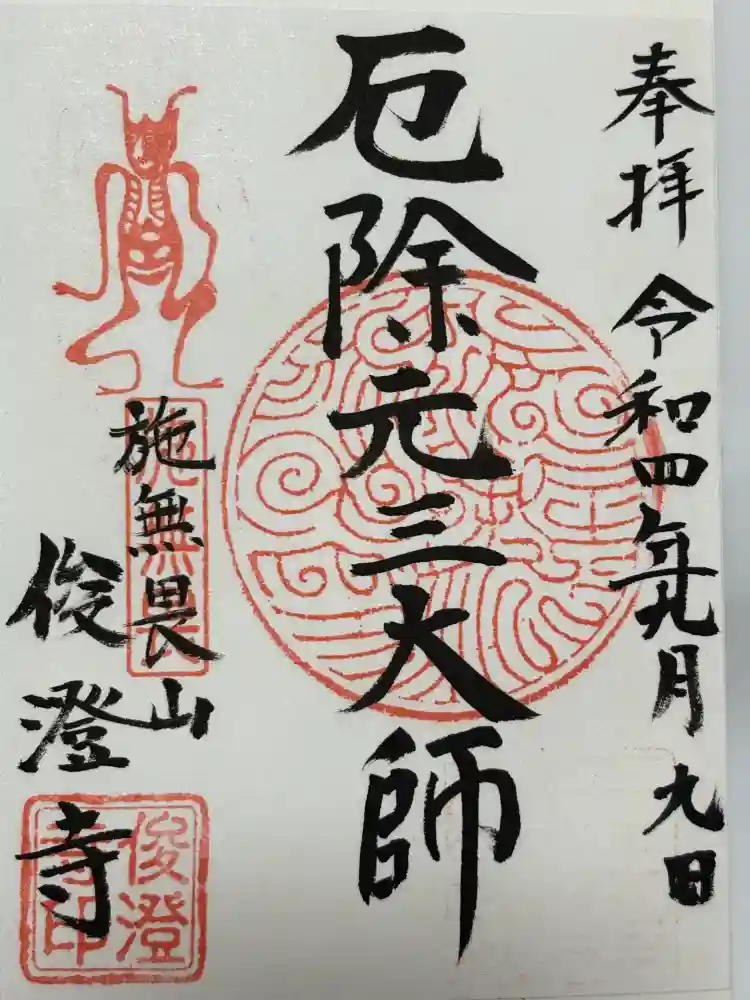 奉拝 令和四年九月九日
厄除元三大師
施無畏山
俊澄寺
施無畏
俊澄寺印